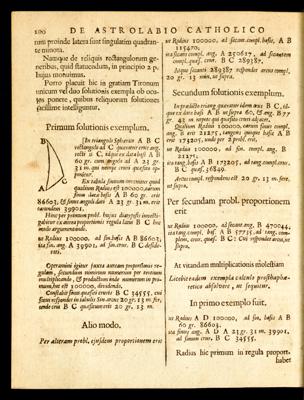 100 DE ASTROLABIO CATHOLICO
tum proinde latera sunt singulatim quadran-
te minora.
Namque de reliquis rectangulorum ge-
neribus, quid statuendum, in principio 2 p.
hujus monuimus.
Porro placuit hic in gratiam Tironum
unicum vel duo solutionis exempla ob ocu-
los ponere, quibus reliquorum solutiones
facilime intelligentur.
Primum solutionis exemplum.
A
B
C
In triangulo sphærico A B C
rectangulo ad C quærere crus angu-
lo recto & C, idque ex data basi A B
60 gr. cum angulo ad A 23 gr
31 m. qui nempe cruri quæsito op-
ponitur.
Ex tabula sinuum invenitur quod
qualium Radius est 100000, earum
sinus datæ basis A B 60 gr. erit
86603, & sinus anguli dati A 23 gr. 31 m. erit
tacundem 39901.
Hinc per primum probl. hujus
igitur ex aurea proportionis regula latus B C hoc
modo argumentando.
ut Radius 100000, ad sin. basis A B 86603,
ita sin. ang. A 39901, ad sin. crur. B C deside-
rati.
Operamini igitur juxta auream proportionis re-
gulam, secundum numerum per tertium
multiplicando, & productum inde numerum in pri-
mum, hoc est 100000, dividendo.
Constabit sinus quæsiti cruris B C 34555, cui
sinui respondet in tabulis sin. arcus 20 gr. 13 m. fer,
unde crus B C quæsitum erit 20 gr. 13 m.
Alio modo.
Per alteram probl. ejusdem proportionem erit
ut Radius 100000, ad secant. compl. basis, A B
115470,
ita secant. compl. ang. A 250627, ad secantem
compl. quæs. crur. B C 289387.
Idque secanti 289387 respondet arcus compl.
20 gr. 13 min. ut supra.
Secundum solutionis exemplum.
In prædicto triang. quæratur idem crus B C,
que ex data basi A B 60, & ang. B 77
gr. 43 m. nempe qui quæsito cruri adjacet.
Qualium Radius 100000, earum sinus compl.
ang. B erit 21275, tangens quoque basis A B
erit 173205, unde per 2 probl. erit,
ut Radius 100000, ad sin. compl. ang. B
21275,
ita tang. basis A B 173205, ad tang. compl. crur.
B C quæs. 36849.
Arcus compl. respondens est 20 gr. 13 m. fere,
ut supra.
Per secundam probl. proportionem
erit
ut Radius 100000, ad secant. ang. B 470044,
ita tang. compl. basis A B 57735, ad tang. com-
plem. crur. quæs. B C: Cui respondet arcus, ut
supra.
At vitandam multiplicationis molestiam
Licebit eadem exempla calculo prosthaphæ-
retico absolvere, ut sequitur.
In primo exemplo fuit.
ut Radius A D 100000, ad sin. basis A B
60 gr. 86603,
ita sinus ang. A D A 23 gr. 31 m. 39901,
ad sinum crur. B C 34555.
Radius hic primum in regula propor.
habet